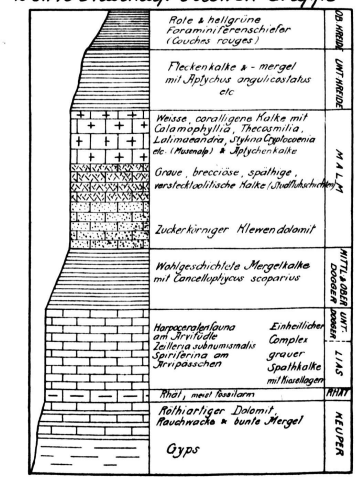 Rote & hellgrüne
Foraminiferenschiefer
(Couches rouges)
OB. KREIDE
Fleckenkalke & -mergel
mit Aptychus angulicostatus
etc
UNT. KREIDE
Weisse, coralligene Kalke mit
Calamophyllia, Thecosmilia,
Latimaeandra, Stylina Cryptocoenia
etc. (Musenalp) & Aptychenkalke
Graue, brecciöse, späthige,
versteckt oolitische Kalke
Zuckerkörniger Klewendolomit
MALM
Wohlgeschichtete Mergelkalke
mit Cancellophycus scoparius
MITTL & OBER
DOGGER
Harpoceratenfauna
am Arvifüdle
Zeilleria subnumismalis
Spiriferina am
Arvipässchen
Einheitlicher
Complex
grauer
Spathkalke
mit Kiesellagen
UNT.
DOGGER
LIAS
Rhät, meist fossilarm
RHÄT
Röthiartiger Dolomit,
Rauchwacke & bunte Mergel
Gyps
KEUPER